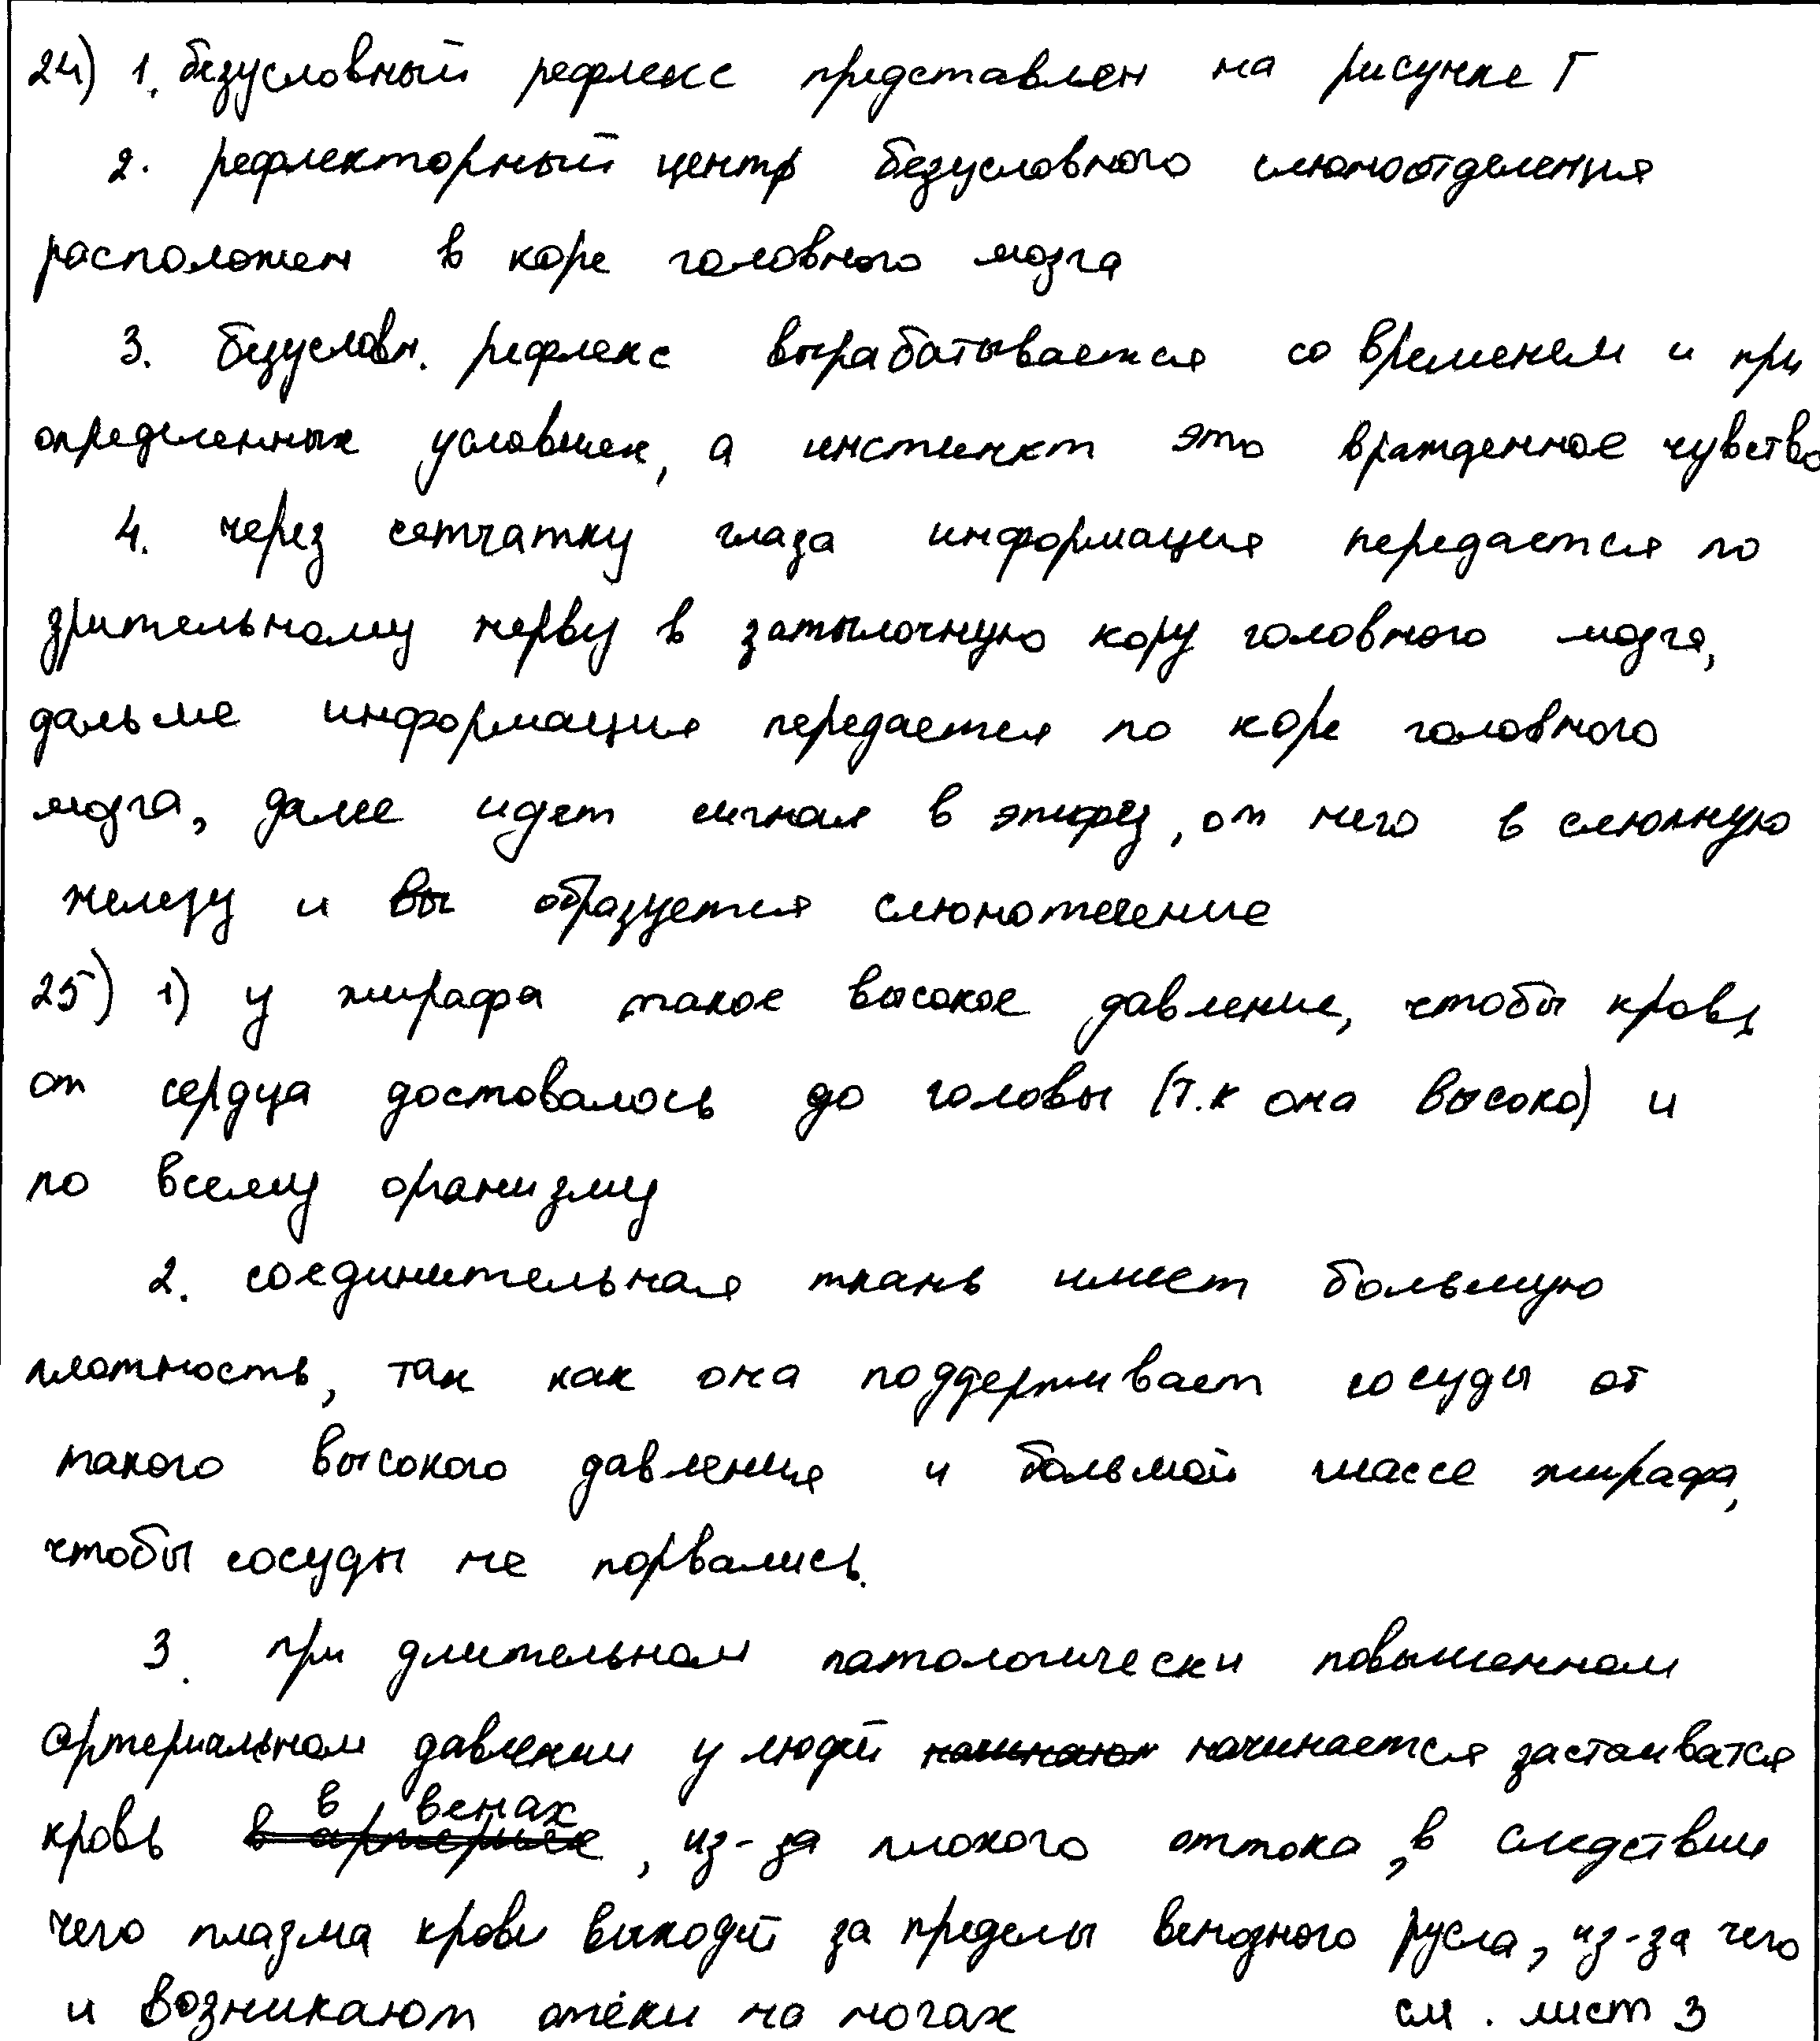 24) 1. безусловный рефлекс представлен на рисунке Г
2. рефлекторный центр безусловного слюноотделения
расположен в коре головного мозга
3. безусловн. рефлекс вырабатывается со временем и при
определенных условиях, а инстинкт это врожденное чувство
4. через сетчатку глаза информация передается по
зрительному нерву в затылочную кору головного мозга,
дальше информация передается по коре головного
мозга, далее идет сигнал в эпифез, от него в слюнную
железу и вы образуется слюнотечение
25) 1) у жирафа такое высокое давление, чтобы кровь
от сердца доставалось до головы (т.к она высоко) и
по всему организму
2. соединительная ткань имеет большую
плотность, так как она поддерживает сосуды от
такого высокого давления и большой массе жирафа,
чтобы сосуды не порвались.
3. при длительном патологически повышенном
артериальном давлении у людей начинают начинается застаиватся
кровь в артериях в венах, из-за плохого оттока, в следствии
чего плазма крови выходит за пределы венозного русла, из-за чего
и возникают отёки на ногах см. лист 3